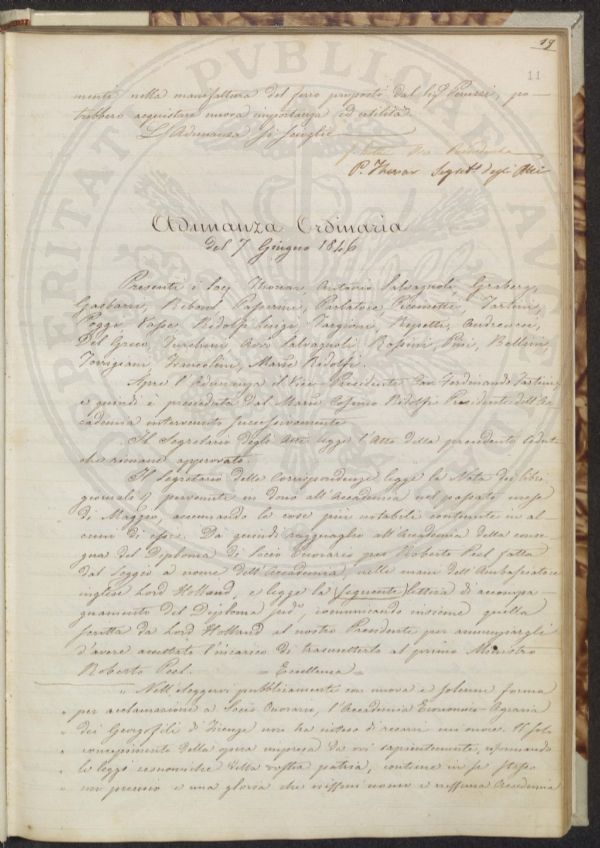 19
11
menti nella manifattura del ferro proposti dal Sig.r Peruzzi, po-
trebbero acquistare nuova importanza ed utilità.
L'Adunanza si scioglie
Presidente
P. Thouar Segret.o degli Atti
Adunanza Ordinaria
del 7 Giugno 1846
Presenti i Socj Thouar, Antonio Salvagnoli, Graberg,
Gasbarri, Passerini, Parlatore, Tartini,
Poggi, Ridolfi Luigi, Targioni, Repetti, Andreucci,
Del Greco, Salvagnoli, Rossini, Pini, Bellini,
Torrigiani, Francolini, March. Ridolfi.
Apre l'Adunanza il Vice-Presidente Cav. Ferdinando Tartini,
e quindi è preceduta dal March. Cosimo Ridolfi Presidente dell'Ac-
cademia intervenuto successivamente.
Il Segretario degli Atti legge l'Atto della precedente seduta
che rimane approvato.
Il Segretario delle Corrispondenze legge la Nota dei libri
giornali pervenuti in dono all'Accademia nel passato mese
di Maggio, accennando le cose più notabili contenute in al-
cuni di essi. Dà quindi ragguaglio all'Accademia della conse-
gna del Diploma di Socio Onorario per Roberto Peel fatta
dal Seggio a nome dell'Accademia, nelle mani dell'Ambasciatore
inglese Lord Holland, e legge la seguente lettera di accompa-
gnamento del Diploma sud.o, comunicando insieme quella
scritta da Lord Holland al nostro Presidente per annunziargli
d'avere accettato l'incarico di trasmetterla al primo Ministro
Roberto Peel. = Eccellenza =
" Nell'eleggervi pubblicamente con nuova e solenne forma
per acclamazione a Socio Onorario, l'Accademia Economico-Agraria
dei Georgofili di Firenze non ha inteso di recarvi un onore. Il solo
concepimento della opera impresa da voi sapientemente, riformando
le leggi economiche della vostra patria, contiene in se stesso
un premio e una gloria che nessun uomo e nessuna Accademia